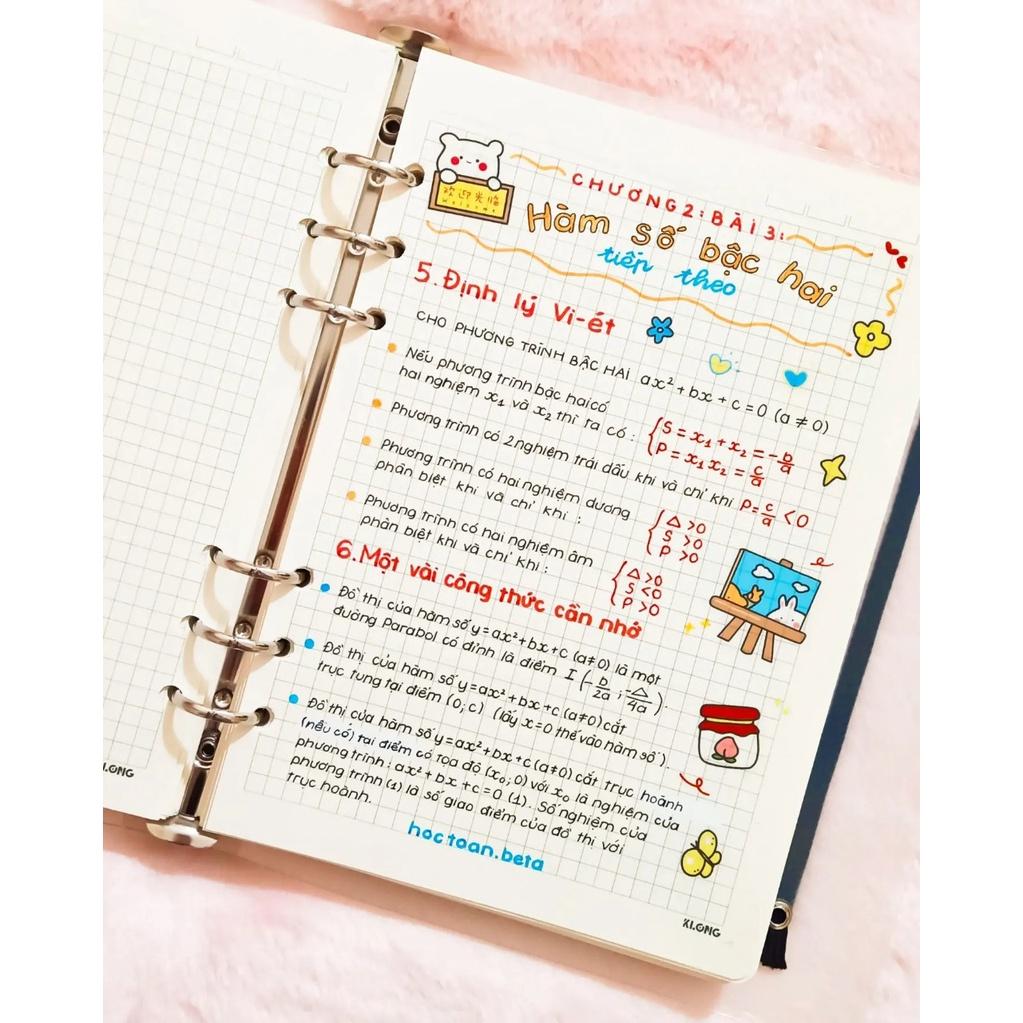 欢迎光临
Welcome
CHƯƠNG 2: BÀI 3:
Hàm số bậc hai
tiếp theo
5. Định lý Vi-ét
CHO PHƯƠNG TRÌNH BẬC HAI ax² + bx + c = 0 (a ≠ 0)
Nếu phương trình bậc hai có
hai nghiệm x₁ và x₂ thì ta có : { S = x₁ + x₂ = -b/a
P = x₁ x₂ = c/a
Phương trình có 2 nghiệm trái dấu khi và chỉ khi P = c/a < 0
Phương trình có hai nghiệm dương
phân biệt khi và chỉ khi : { Δ > 0
S > 0
P > 0
Phương trình có hai nghiệm âm
phân biệt khi và chỉ khi : { Δ > 0
S < 0
P > 0
6. Một vài công thức cần nhớ
Đồ thị của hàm số y = ax² + bx + c (a ≠ 0) là một
đường Parabol có đỉnh là điểm I (-b/2a ; -Δ/4a).
Đồ thị của hàm số y = ax² + bx + c (a ≠ 0) cắt
trục tung tại điểm (0; c) (lấy x = 0 thế vào hàm số).
Đồ thị của hàm số y = ax² + bx + c (a ≠ 0) cắt trục hoành
(nếu có) tại điểm có tọa độ (x₀; 0) với x₀ là nghiệm của
phương trình : ax² + bx + c = 0 (1). Số nghiệm của
phương trình (1) là số giao điểm của đồ thị với
trục hoành.
hoctoan.beta
KLONG